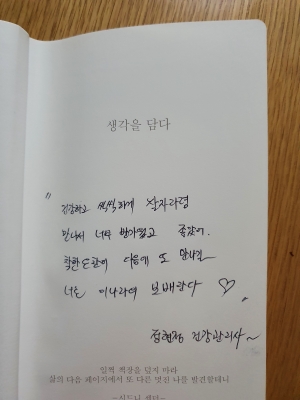 생각을 담다
"
건강하고 씩씩하게 잘자라렴
만나서 너무 반가웠고 좋았어.
착한 다음에 또 만나길
너는 이나라의 보배란다 ♡
"
건강관리사~
일찍 책장을 덮지 마라
삶의 다음 페이지에서 또 다른 멋진 나를 발견할테니
-시드니 셀던-